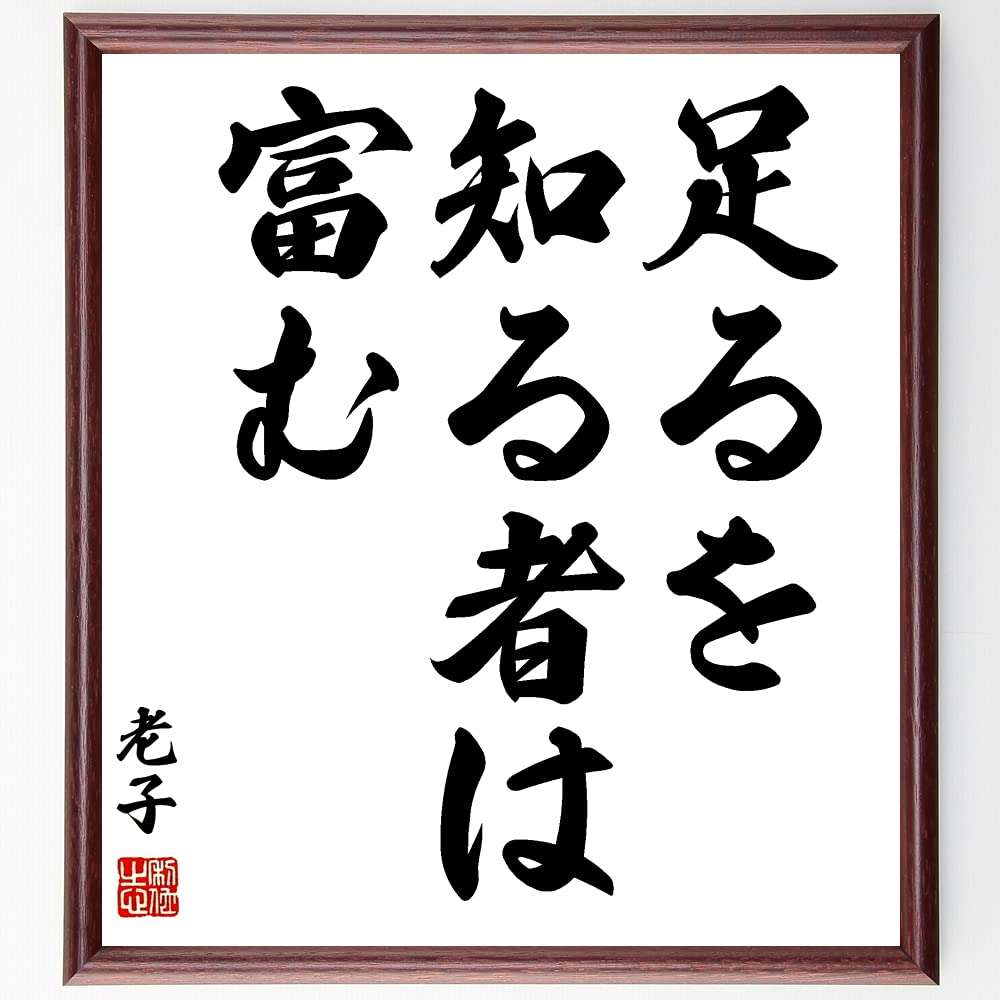 足るを
知る者は
富む
老子